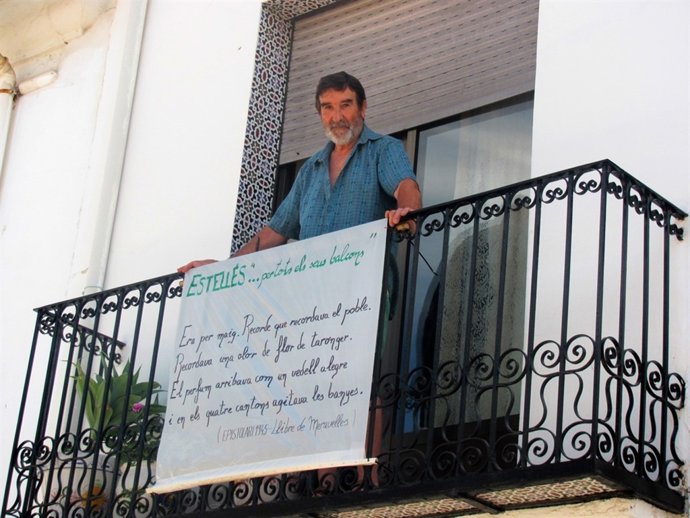 ESTELLÉS "...per tots els seus balcons"
Era per maig. Recorde que recordava el poble.
Recordava una olor de flor de taronger.
El perfum arribava com un vedell alegre
i en els quatre cantons agitava les banyes.
(EPISTOLARI 1965- Llibre de Meravelles)